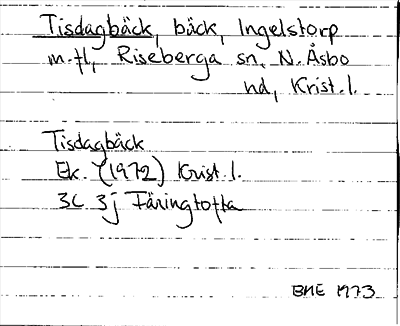 Tisdagbäck, bäck, Ingelstorp
m.fl, Riseberga sn, N. Åsbo
hd, Krist. l.
Tisdagbäck
Ek. (1972) Krist. l.
3C 3j Färingtofta
BME 1973